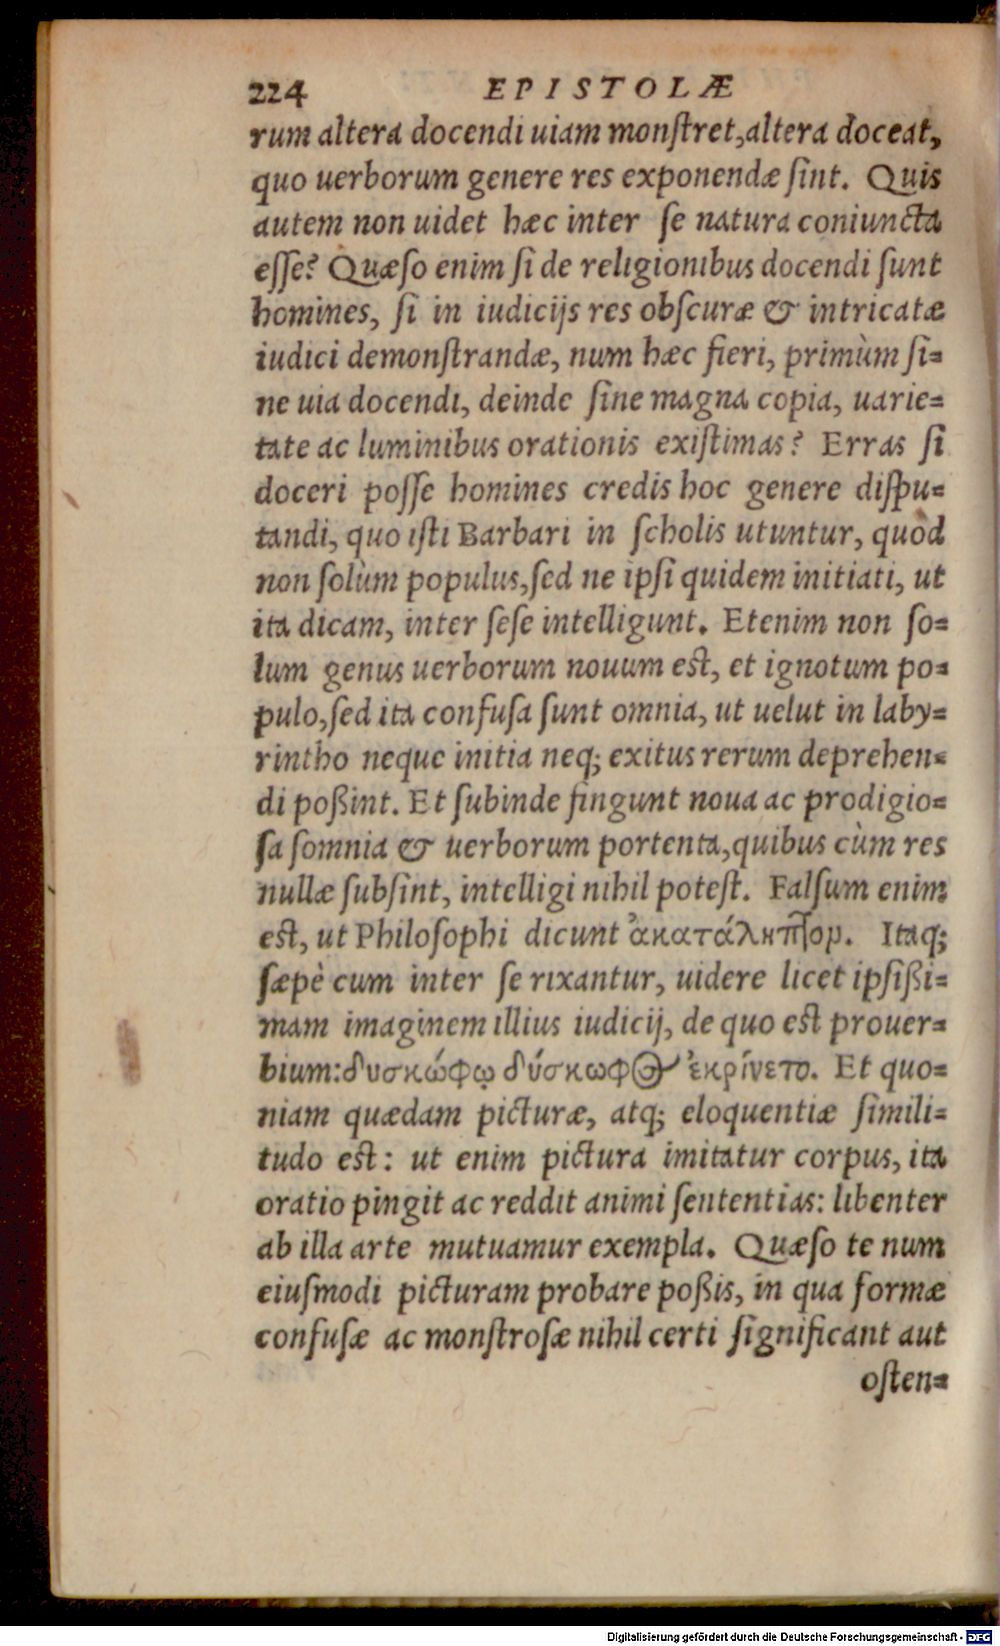 224 EPISTOLÆ
rum altera docendi uiam monſtret,altera doceat,
quo uerborum genere res exponendæ ſint. Quis
autem non uidet hæc inter ſe natura coniuncta
eſſe? Quæſo enim ſi de religionibus docendi ſunt
homines, ſi in iudicijs res obſcuræ & intricatæ
iudici demonſtrandæ, num hæc fieri, primùm ſi=
ne uia docendi, deinde ſine magna copia, uarie=
tate ac luminibus orationis exiſtimas? Erras ſi
doceri poſſe homines credis hoc genere diſpu=
tandi, quo iſti Barbari in ſcholis utuntur, quòd
non ſolùm populus,ſed ne ipſi quidem initiati, ut
ita dicam, inter ſeſe intelligunt. Etenim non ſo=
lum genus uerborum nouum est, et ignotum po=
pulo,ſed ita confuſa ſunt omnia, ut uelut in laby=
rintho neque initia neq; exitus rerum deprehen=
di poßint. Et ſubinde fingunt noua ac prodigio=
ſa ſomnia & uerborum portenta,quibus cùm res
nullæ ſubſint, intelligi nihil poteſt. Falſum enim
est, ut Philoſophi dicunt ἀκατάληπτον. Itaq;
ſæpè cum inter ſe rixantur, uidere licet ipſißi=
mam imaginem illius iudicij, de quo est prouer=
bium:δυσκώφῳ δύσκωφος ἐκρίνετο. Et quo=
niam quædam picturæ, atq; eloquentiæ ſimili=
tudo est: ut enim pictura imitatur corpus, ita
oratio pingit ac reddit animi ſententias: libenter
ab illa arte mutuamur exempla. Quæſo te num
eiuſmodi picturam probare poßis, in qua formæ
confuſæ ac monſtroſæ nihil certi ſignificant aut
oſten=
Digitalisierung gefördert durch die Deutsche Forschungsgemeinschaft - DFG